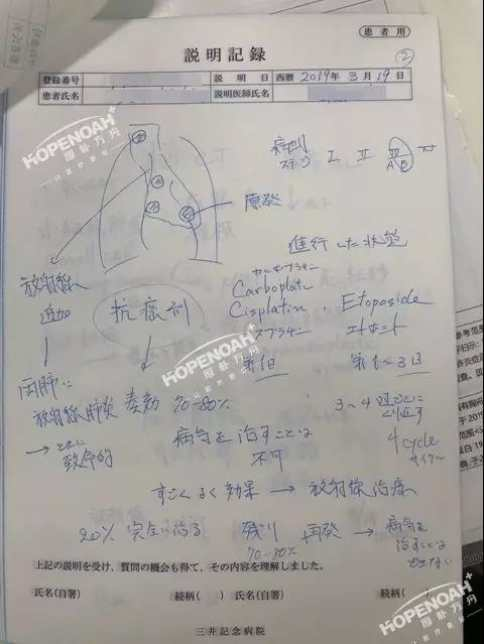 患者用
②
説明記録
登録番号 説明日 西暦 2019年 3月 19日
患者氏名 説明医師氏名
HOPENOAH+
病期
I II III
A B
原発
進行した状態
放射線
追加
抗癌剤
Carboplatin
Cisplatin . Etoposide
シスプラチン
第1日 第1~3日
放射線肺炎 奏効 70-80%
3~4週ごとに
くり返す
→ 致命的
病気を治すことは
不可
4 cycle
サイクル
すごくよく効果 → 放射線治療
20% 完全に治る 残り 再発 → 病気を
治すことは
できない
70-80%
上記の説明を受け、質問の機会も得て、その内容を理解しました。
氏名(自署) 続柄( ) 氏名(自署) 続柄(
三井記念病院
HOPENOAH+
HOPENOAH+
HOPENOAH+